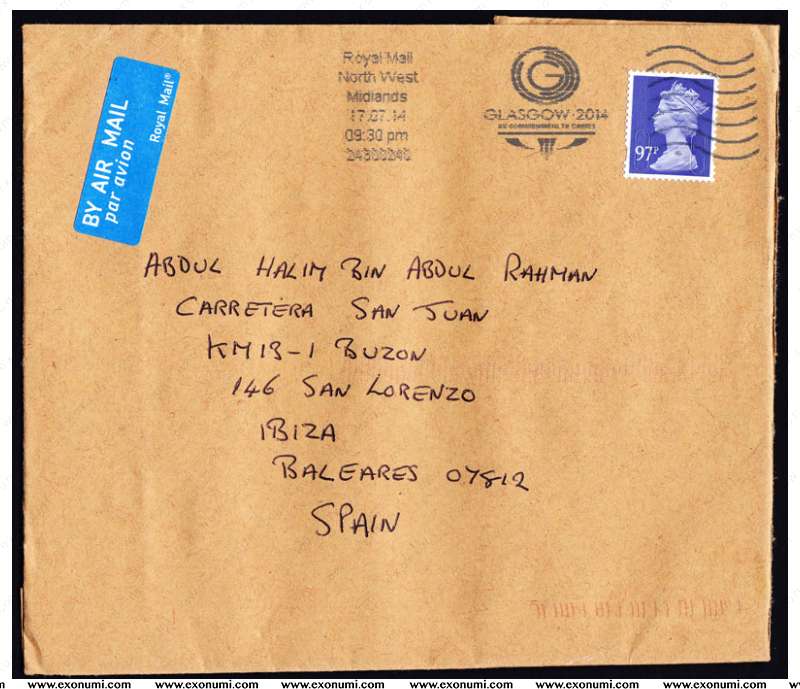 BY AIR MAIL
par avion
Royal Mail®
Royal Mail
North West
Midlands
17.07.14
09:30 pm
GLASGOW·2014
XX COMMONWEALTH GAMES
97P
ABDUL HALIM BIN ABDUL RAHMAN
CARRETERA SAN JUAN
KM 13-1 BUZON
146 SAN LORENZO
IBIZA
BALEARES 07812
SPAIN
www.exonumi.com www.exonumi.com www.exonumi.com www.exonumi.com www.exonumi.com www.exonumi.com